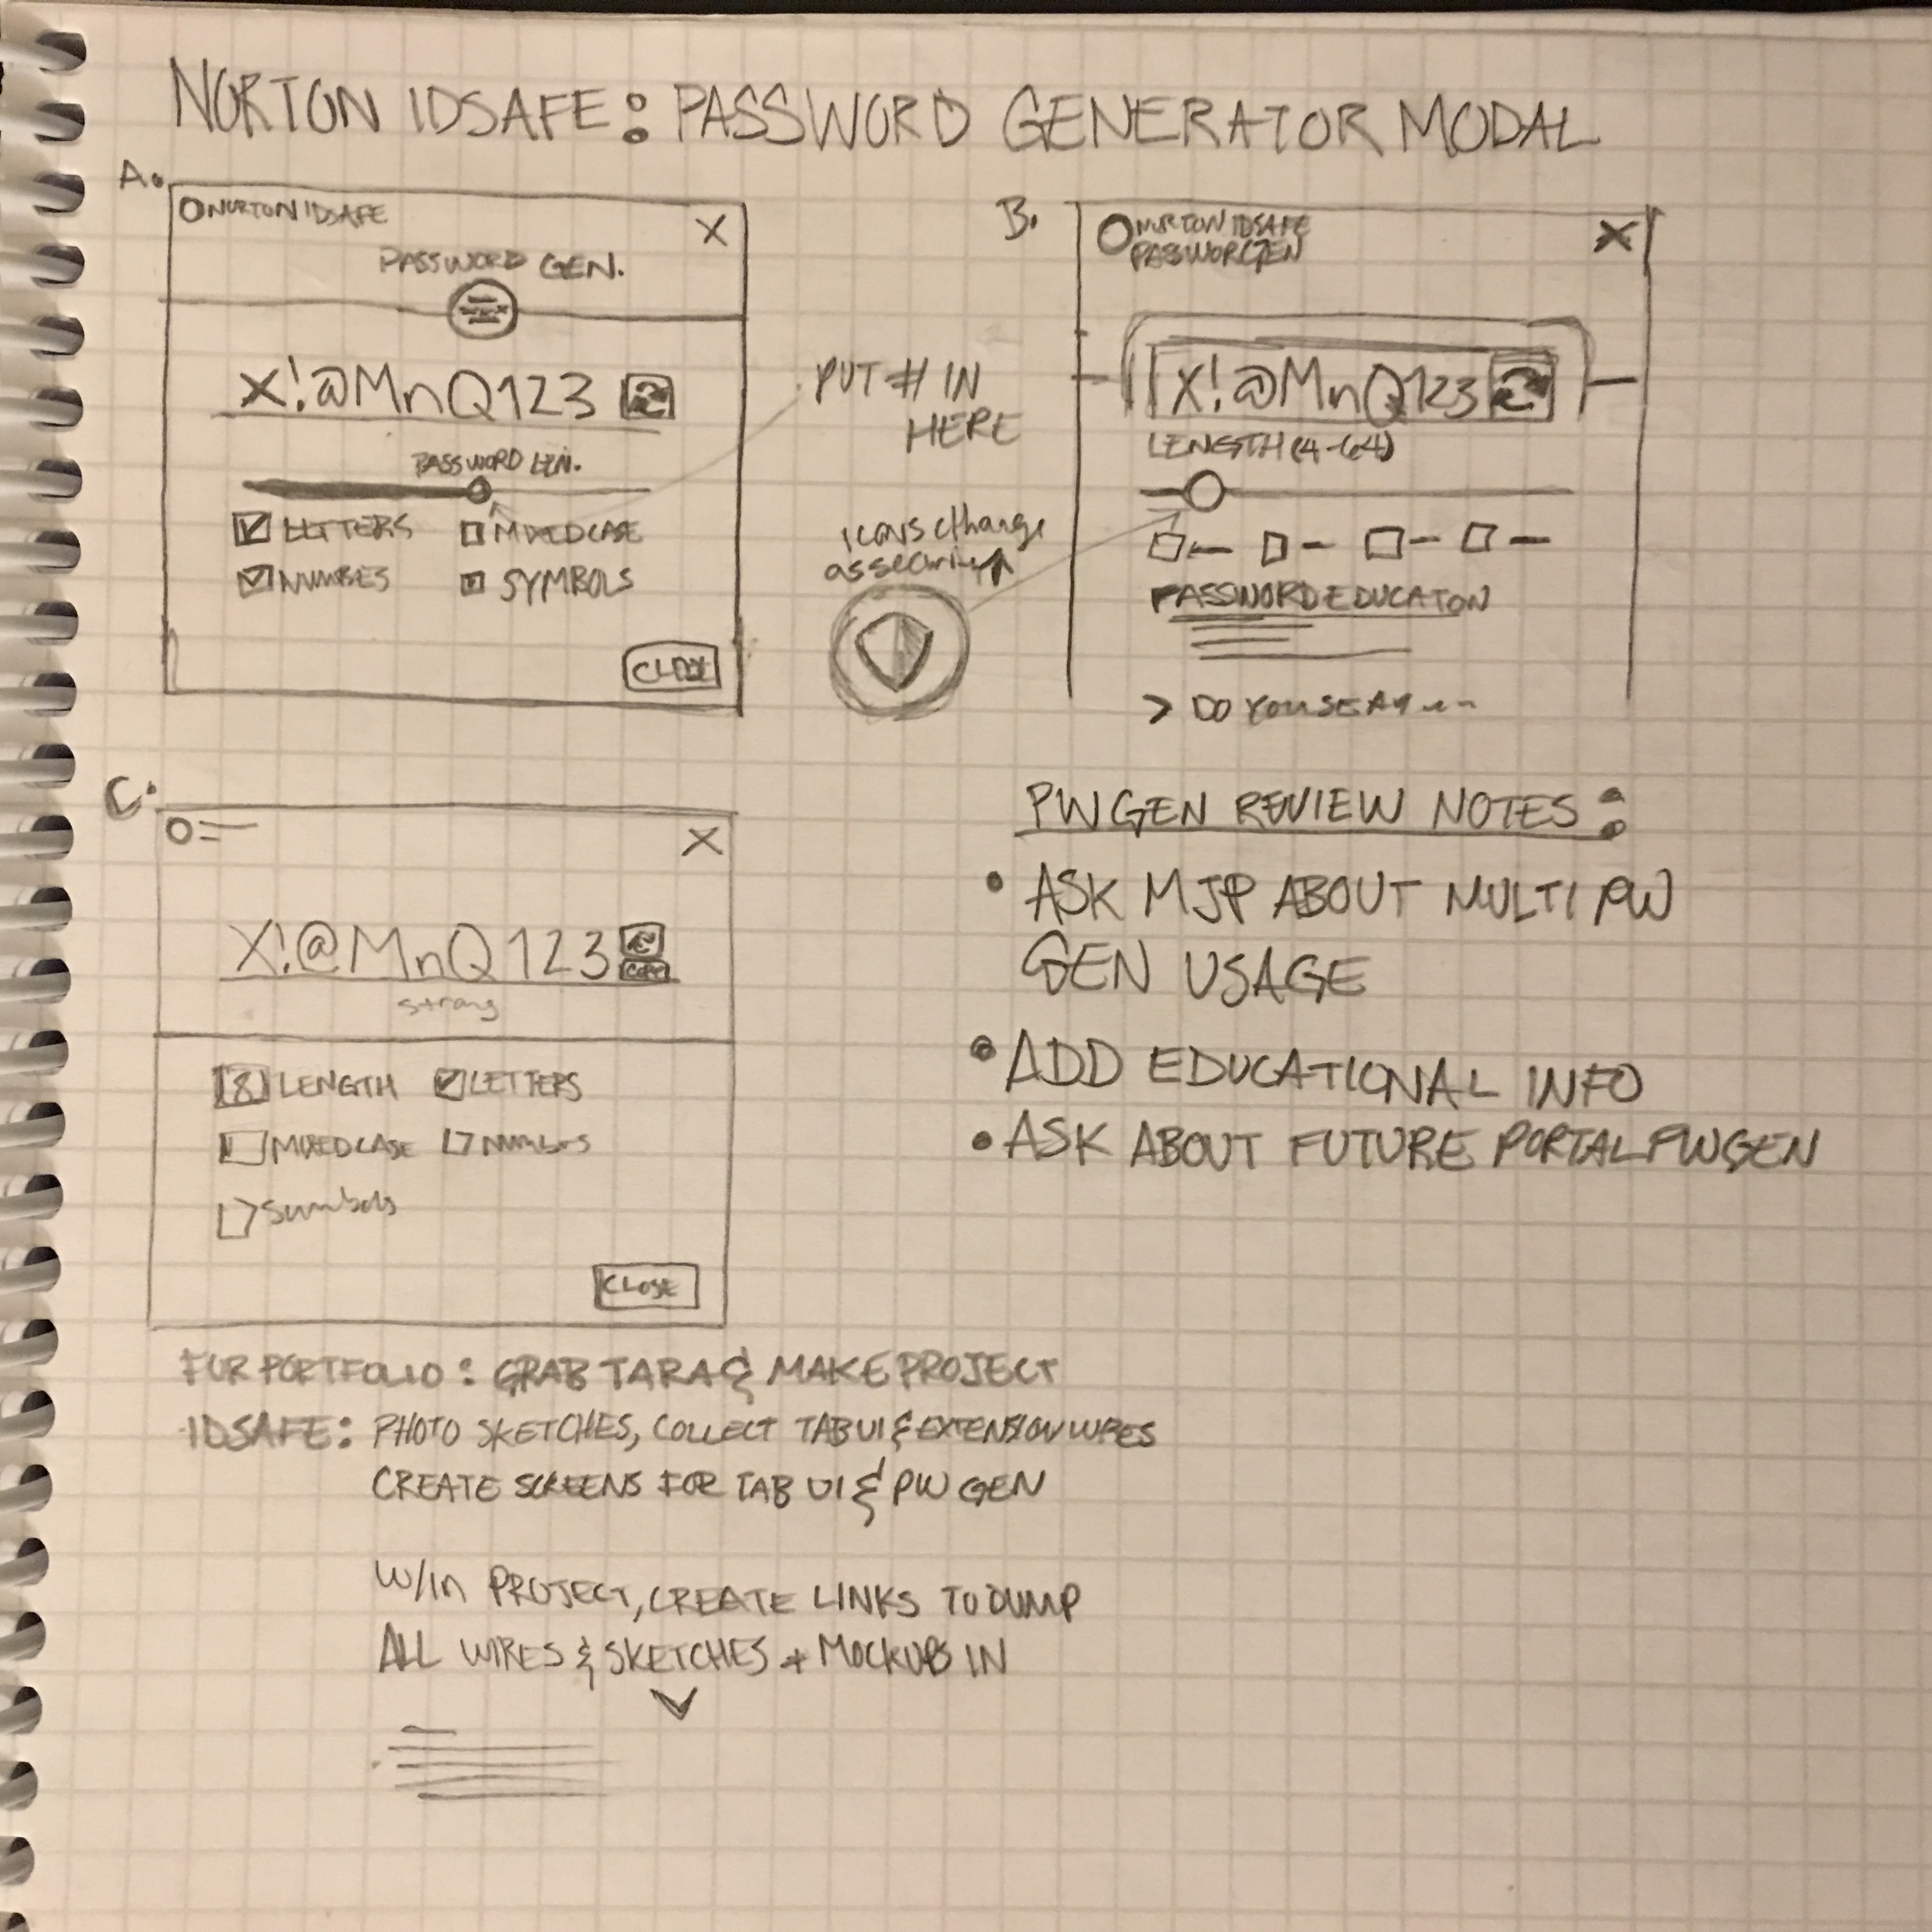 NORTON IDSAFE: PASSWORD GENERATOR MODAL
A.
NORTON IDSAFE
X
PASSWORD GEN.
X!@MnQ123
PASSWORD LEN.
LETTERS
MIXEDCASE
NUMBES
SYMBOLS
CLOSE
PUT # IN
HERE
icons change
as security
B.
NORTON IDSAFE
PASSWORGEN
X
X!@MnQ123
LENGTH (4-64)
PASSWORD EDUCATON
> DO YOU
C.
X
X!@MnQ123
COPY
strong
8 LENGTH
LETTERS
MIXEDCASE
Numbers
Symbols
CLOSE
PWGEN REVIEW NOTES:
• ASK MJP ABOUT MULTI PW
GEN USAGE
• ADD EDUCATIONAL INFO
• ASK ABOUT FUTURE PORTAL PWGEN
FOR PORTFOLIO: GRAB TARA & MAKE PROJECT
IDSAFE: PHOTO SKETCHES, COLLECT TAB UI & EXTENSION WIRES
CREATE SCREENS FOR TAB UI & PW GEN
W/in PROJECT, CREATE LINKS TO DUMP
ALL WIRES & SKETCHES + MOCKUPS IN